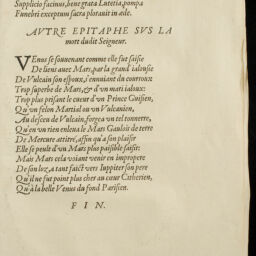 Supplicio facinus, bene grata Lutetia, pompa
Funebri exceptum sacra plorauit in æde.
AVTRE EPITAPHE SVS LA
mort dudit Seigneur.
VEnus se souuenant comme elle fut saisie
De liens auec Mars, par la grand ialousie
De Vulcain son espoux, s'ennuiant du courroux
Trop superbe de Mars, & d'vn mati ialoux:
Trop plus prisant le cueur d'vn Prince Guisien,
Qu'vn felon Martial ou vn Vulcanien,
Au desceu de Vulcain, forgea vn tel tonnerre,
Qu'en vn rien enleua le Mars Gaulois de terre
De Mercure attitré, affin qu'a son plaisir
Elle se peult d'vn Mars plus paisible saisir:
Mais Mars cela voiant venir en impropere
De son loz, a tant faict vers Iuppiter son pere
Qu'il ne fut point plus cher au cœur Citherien,
Qu'à la belle Venus du fond Parisien.
FIN.